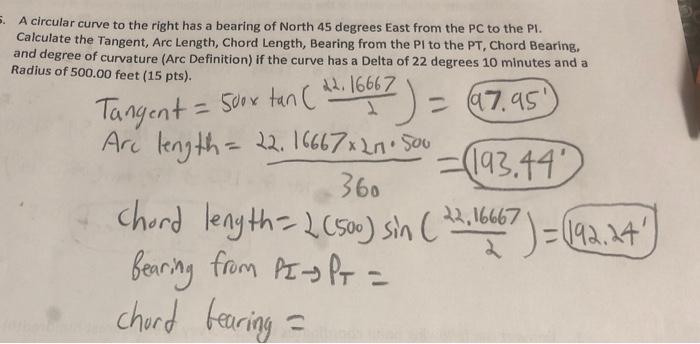 5. A circular curve to the right has a bearing of North 45 degrees East from the PC to the PI.
Calculate the Tangent, Arc Length, Chord Length, Bearing from the PI to the PT, Chord Bearing,
and degree of curvature (Arc Definition) if the curve has a Delta of 22 degrees 10 minutes and a
Radius of 500.00 feet (15 pts).
Tangent = 500 x tan ( 22.16667 / 2 ) = 97.95'
Arc length = 22.16667 x 2π · 500 / 360 = 193.44'
Chord length = 2 (500) sin ( 22.16667 / 2 ) = 192.24'
Bearing from PI → PT =
chord bearing =